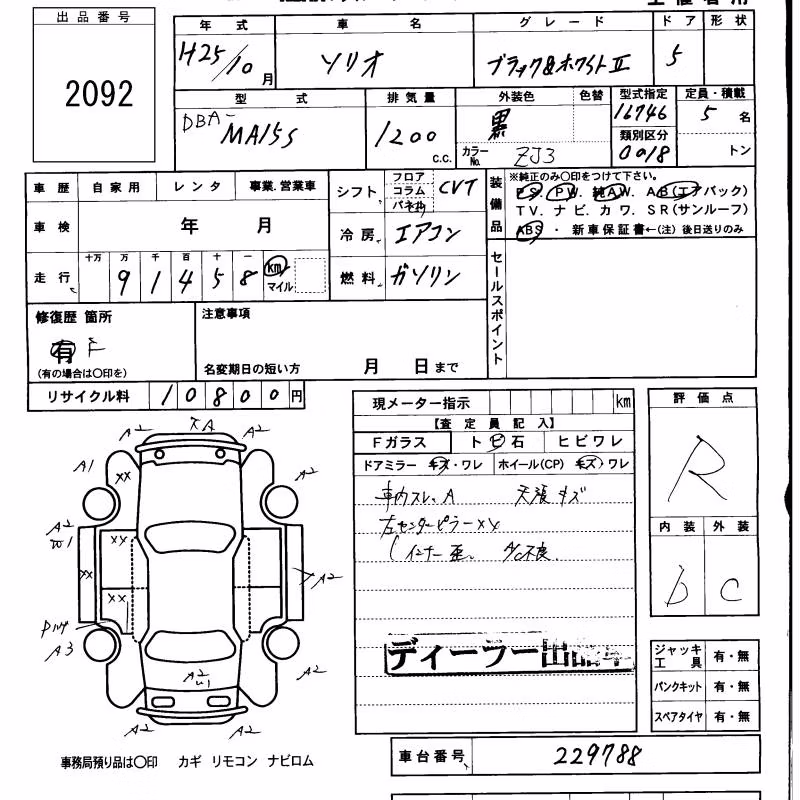 出品番号
2092
年式 車名 グレード ドア 形状
H25/10月 ソリオ ブラック&ホワイトⅡ 5
型式 排気量 外装色 色替 型式指定 定員・積載
DBA- MA15S 1200 c.c. 黒 16746 5名
カラーNo. ZJ3 類別区分 0018 トン
車歴 自家用 レンタ 事業.営業車
車検 年 月
走行 十万 万 千 百 十 一
9 1 4 5 8 km マイル
シフト フロア コラム パネル CVT
冷房 エアコン
燃料 ガソリン
装備品
※純正のみ○印をつけて下さい。
PS. PW. 純AW. AB(エアバック)
TV. ナビ. カワ. SR(サンルーフ)
ABS ・ 新車保証書←(注) 後日送りのみ
セールスポイント
修復歴 箇所
有
(有の場合は○印を)
注意事項
名変期日の短い方 月 日まで
リサイクル料 10800円
現メーター指示 km
【査定員記入】
Fガラス トビ石 ヒビワレ
ドアミラー キズ・ワレ ホイール(CP) キズ・ワレ
車内スレ、A 天張キズ
左センターピラーXX
インナー歪 A/C不良
ディーラー出品車
評価点
R
内装 外装
b C
ジャッキ工具 有・無
パンクキット 有・無
スペアタイヤ 有・無
車台番号 229788
A2 XA A2
A1 XX A2
A2 W1 XX
XX A2
XX
A3
A2 W1 A2
A2 A2
事務局預り品は○印 カギ リモコン ナビロム